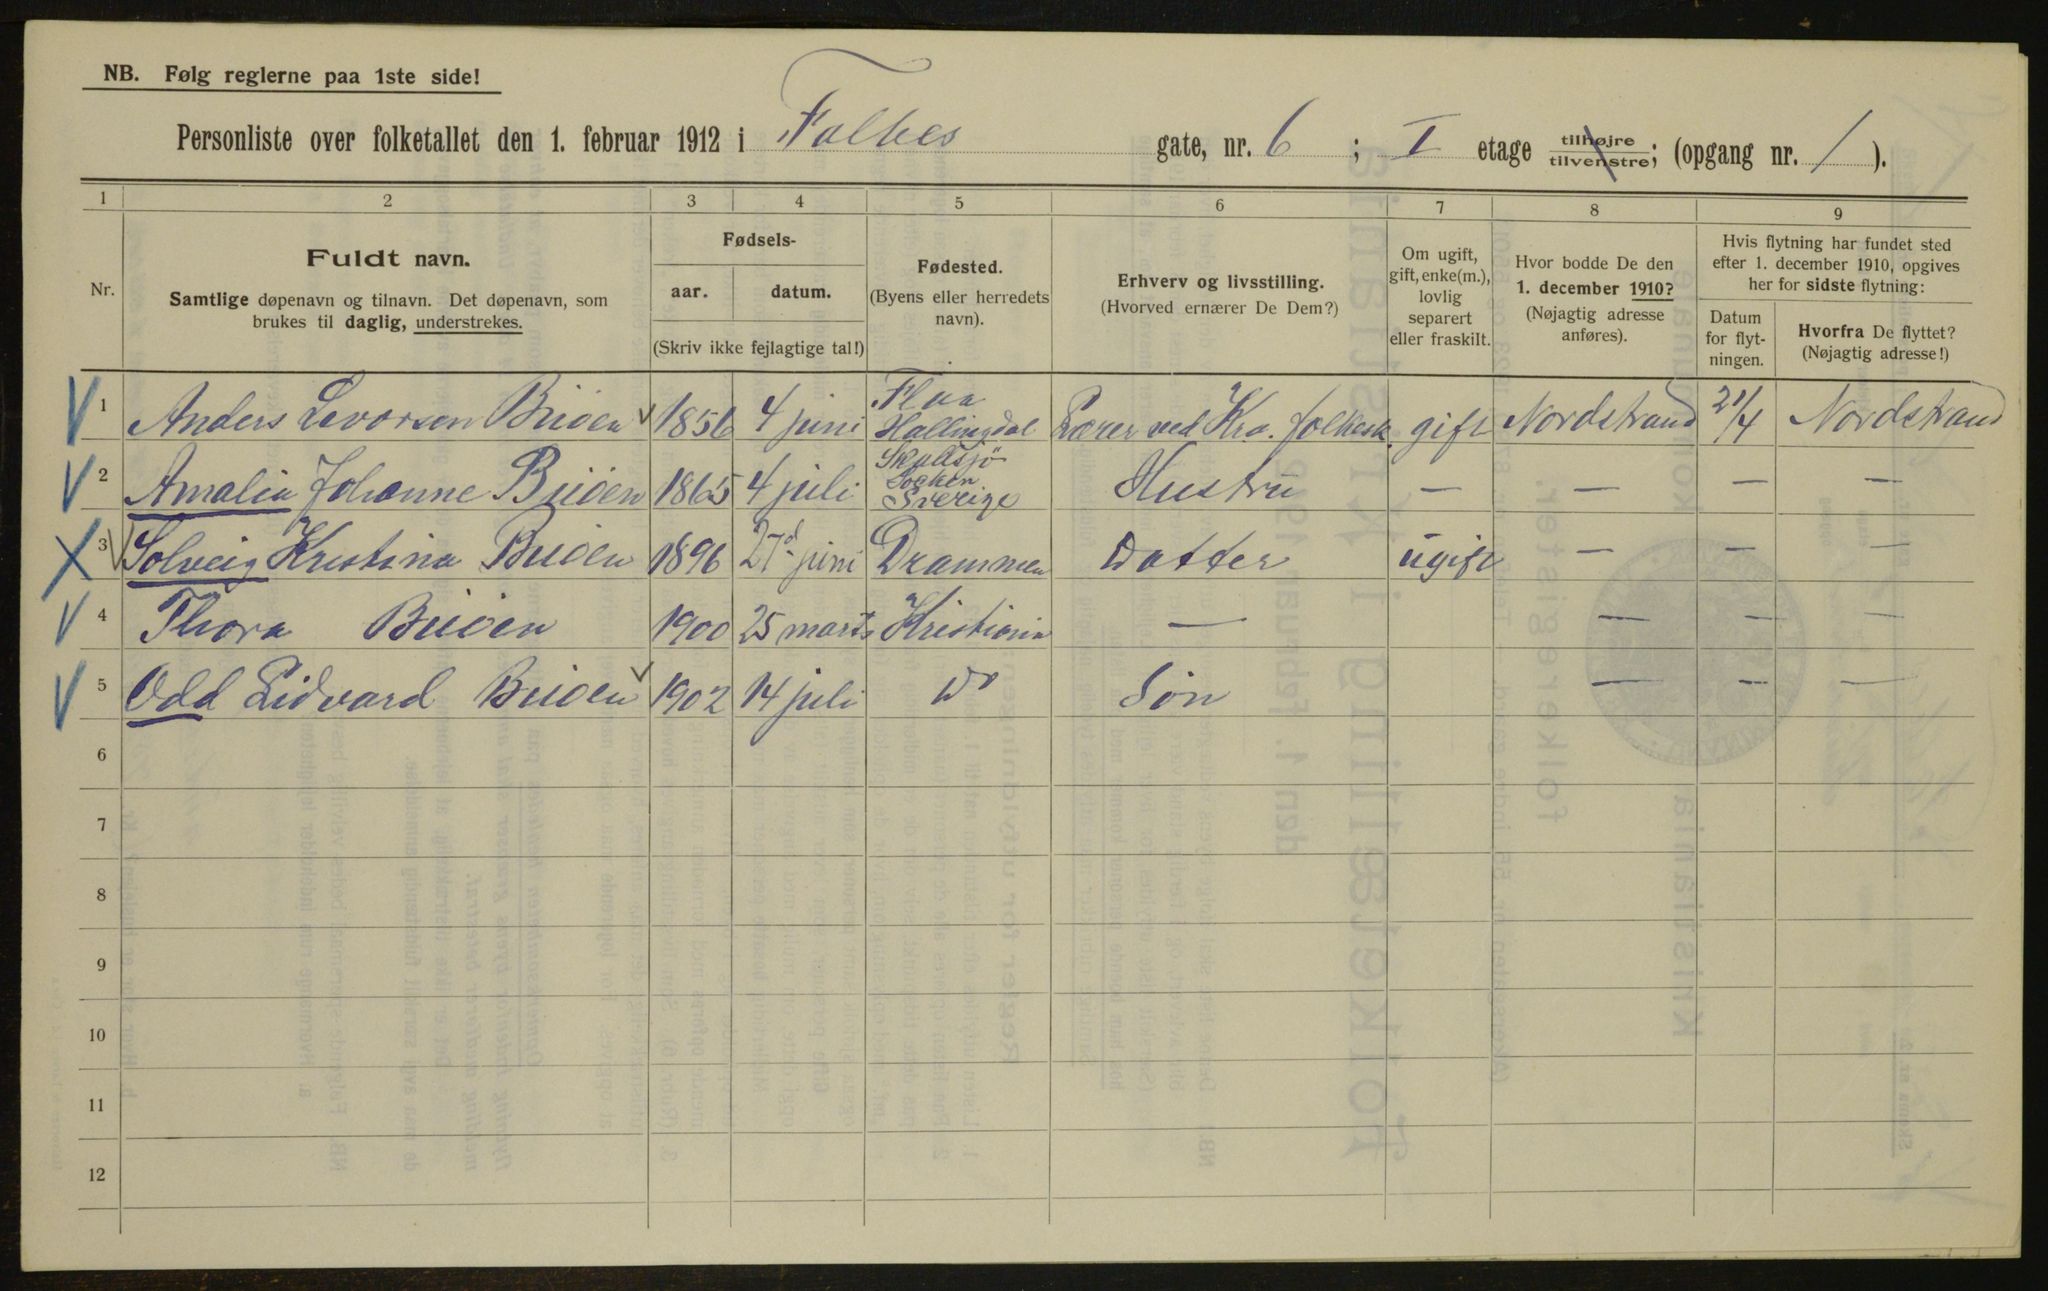 NB. Følg reglerne paa 1ste side!
Personliste over folketallet den 1. februar 1912 i Falbes gate, nr. 6 ; I etage tilhøjre tilvenstre; (opgang nr. 1 ).
1 2 3 4 5 6 7 8 9
Nr.
Fuldt navn.
Samtlige døpenavn og tilnavn. Det døpenavn, som
brukes til daglig, understrekes.
Fødsels-
aar. datum.
(Skriv ikke fejlagtige tal!)
Fødested.
(Byens eller herredets
navn).
Erhverv og livsstilling.
(Hvorved ernærer De Dem?)
Om ugift,
gift, enke(m.),
lovlig
separert
eller fraskilt.
Hvor bodde De den
1. december 1910?
(Nøjagtig adresse
anføres).
Hvis flytning har fundet sted
efter 1. december 1910, opgives
her for sidste flytning:
Datum
for flyt-
ningen.
Hvorfra De flyttet?
(Nøjagtig adresse!)
1 Anders Levorsen Briøen 1856 4 juni Flaa Hallingdal Lærer ved Kra. folkesk. gift Nordstrand 21/4 Nordstrand
2 Amalia Johanne Briøen 1865 4 juli Socken Sverige Hustru — — — —
3 Solveig Kristina Briøen 1896 27d juni Drammen Datter ugift — — —
4 Thora Briøen 1900 25 marts Kristiania — — — —
5 Odd Eidvard Briøen 1902 14 juli Do Søn — — —
6
7
8
9
10
11
12